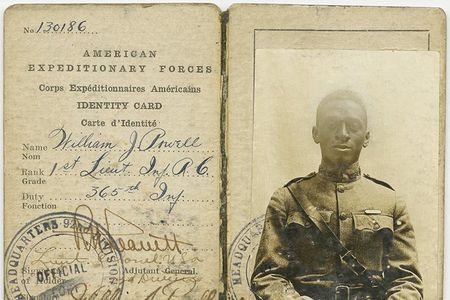 No. 130186
AMERICAN
EXPEDITIONARY FORCES
Corps Expéditionnaires Américains
IDENTITY CARD
Carte d'Identité
Name William J. Powell
Nom
Rank 1st Lieut Inf. R.C.
Grade
Duty 365th Inf.
Fonction
Adjutant General.
of Holder
HEADQUARTERS 92nd DIVISION
OFFICIAL
HEADQUAR